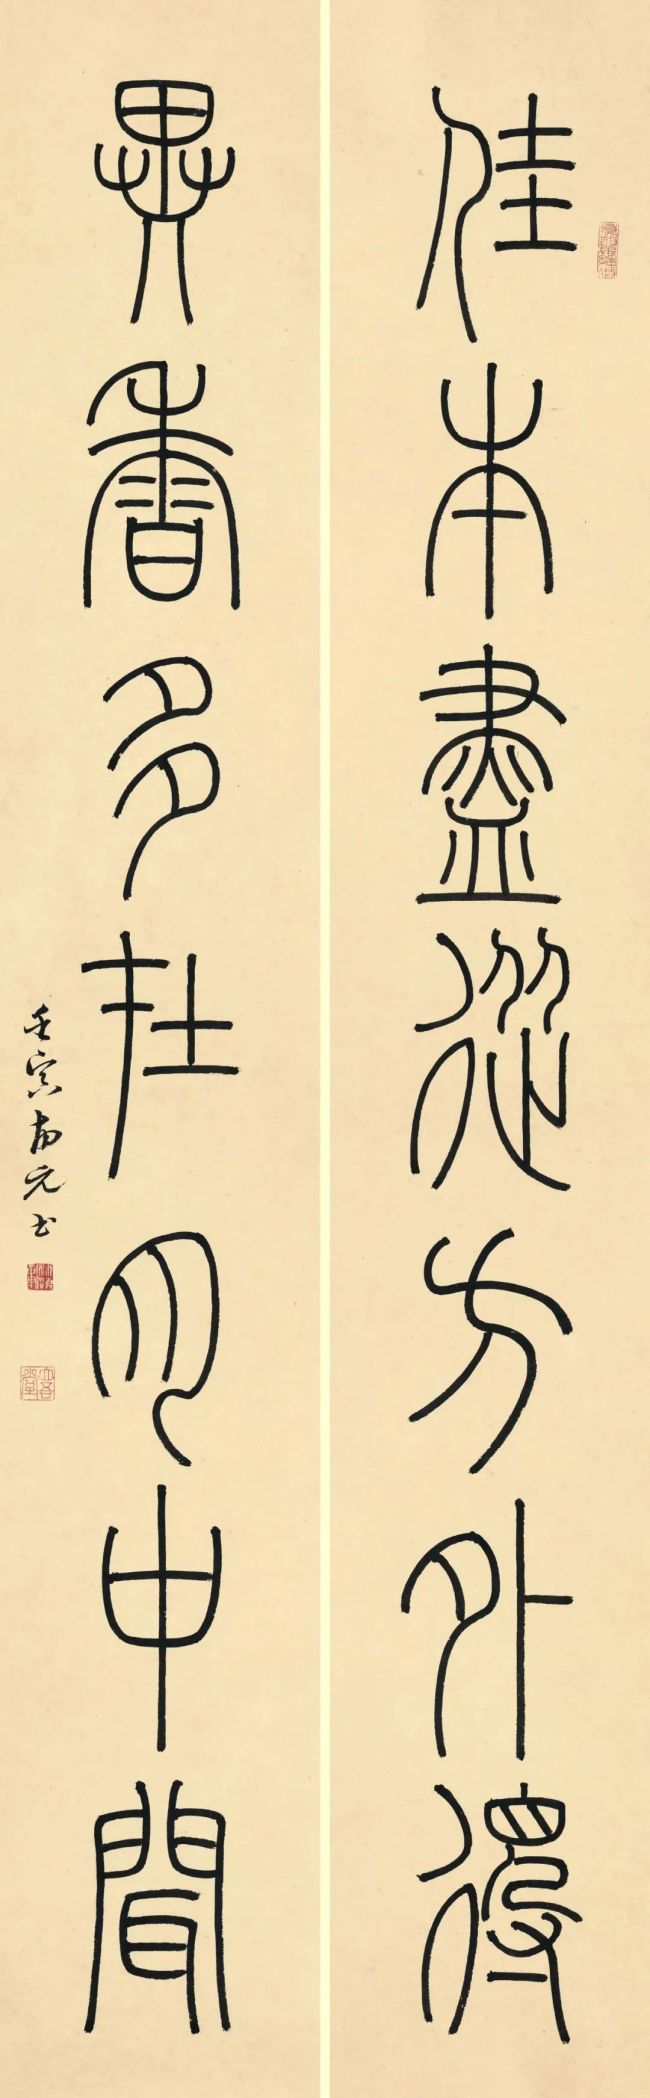 佳本盡從方外得
異香多在月中聞
壬寅南元书